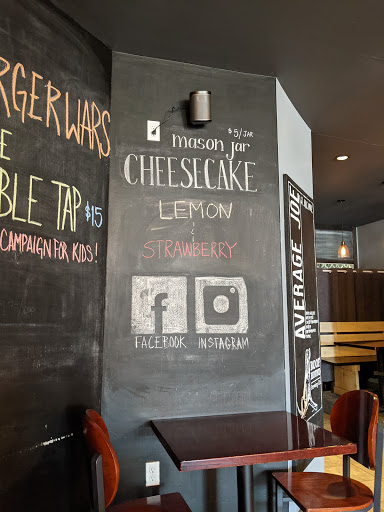 RGERWARS
E
BLE TAP $15
CAMPAIGN FOR KIDS!
$5/JAR
mason jar
CHEESECAKE
LEMON
&
STRAWBERRY
f
FACEBOOK INSTAGRAM
AVERAGE JOE